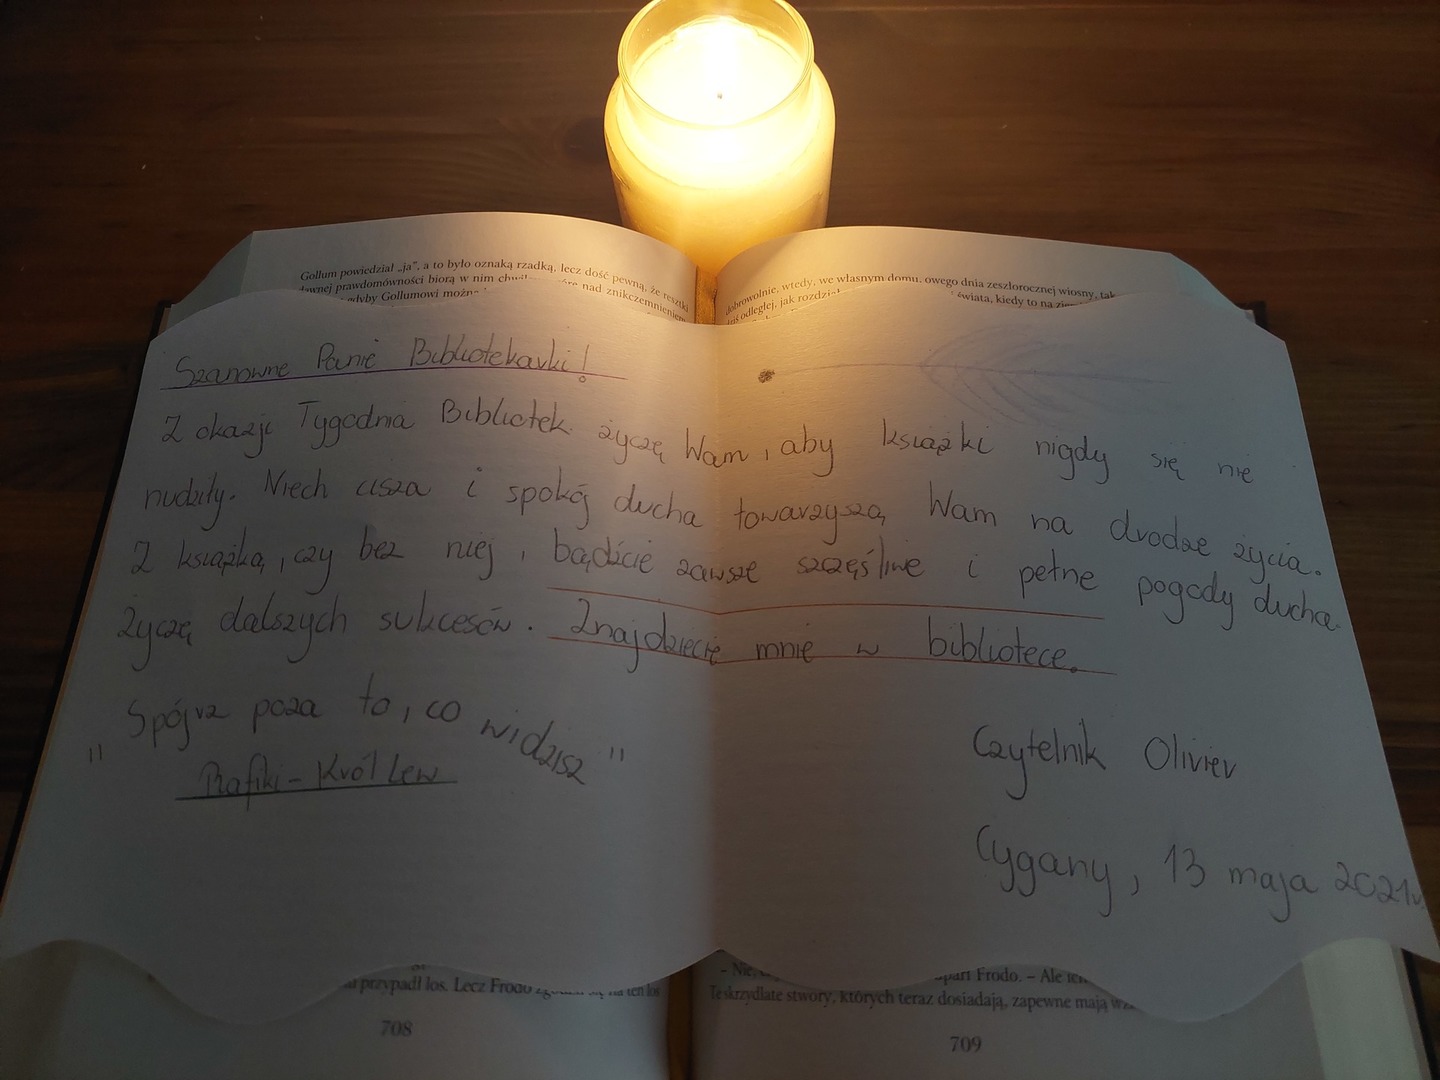 Gollum powiedział „ja", a to było oznaką rzadką, lecz dość pewną, że resztki
dawnej prawdomówności biorą w nim nad znikczemnieniem
gdyby Gollumowi
dobrowolnie, wtedy, we własnym domu, owego dnia zeszłorocznej wiosny, tak
dziś odległej, jak świata, kiedy to na
Szanowne Panie Bibliotekarki!
Z okazji Tygodnia Bibliotek życzę Wam, aby książki nigdy się nie
nudziły. Niech cisza i spokój ducha towarzyszą Wam na drodze życia.
Z książką, czy bez niej, bądźcie zawsze szczęśliwe i pełne pogody ducha.
Życzę dalszych sukcesów. Znajdziecie mnie w bibliotece.
"Spójrz poza to, co widzisz"
Rafiki - Król Lew
Czytelnik Olivier
Cygany, 13 maja 2021r.
przypadł los. Lecz Frodo się na ten los
708
Frodo. – Ale
Te skrzydlate stwory, których teraz dosiadają, zapewne mają
709